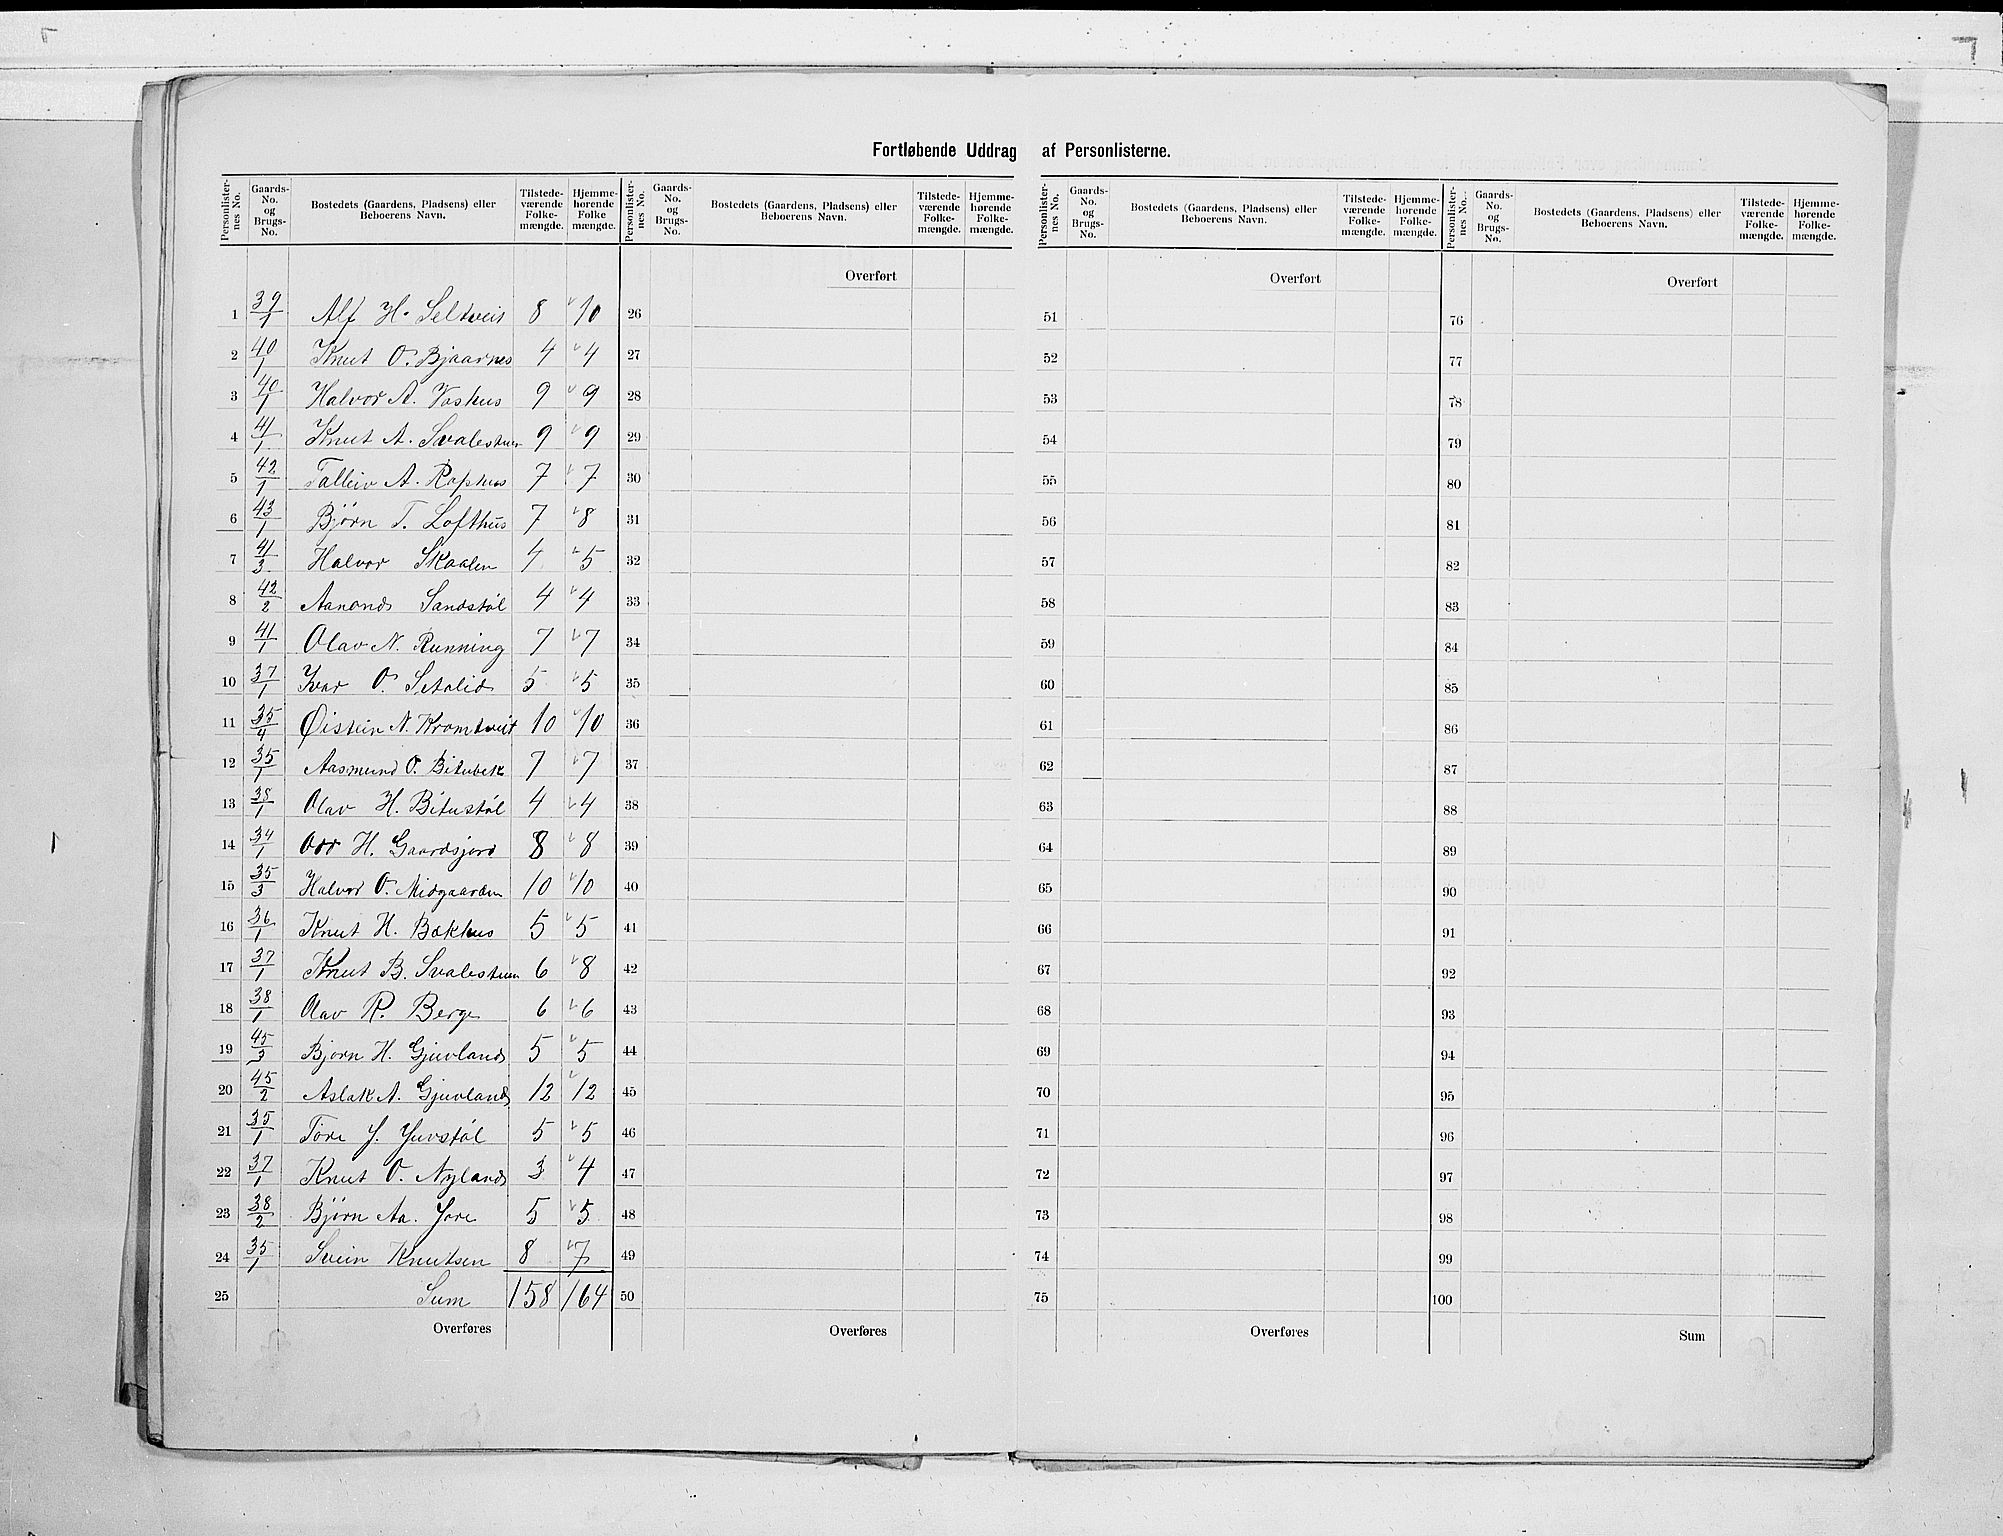 Fortløbende Uddrag af Personlisterne.
Personlister-nes No. | Gaards-No. og Brugs-No. | Bostedets (Gaardens, Pladsens) eller Beboerens Navn. | Tilstede-værende Folke-mængde. | Hjemme-hörende Folke mængde.
1 39/1 Alf H. Seltveit 8 10
2 40/1 Knut O. Bjaarnes 4 4
3 40/1 Halvor A. Voshus 9 9
4 41/1 Knut A. Svalestuen 9 9
5 42/1 Talleiv A. Raphus 7 7
6 43/1 Bjørn T. Lofthus 7 8
7 41/3 Halvor Skaalen 4 5
8 42/2 Aanond Sandstøl 4 4
9 41/1 Olav N. Running 7 7
10 37/1 Ivar O. Setalid 5 5
11 35/4 Øistein N. Kromtveit 10 10
12 35/1 Aasmund O. Bitubek 7 7
13 38/1 Olav H. Bitustøl 4 4
14 34/1 Odd H. Gaardsjord 8 8
15 35/3 Halvor O. Midgaarden 10 10
16 36/1 Knut H. Bakhus 5 5
17 37/1 Knut B. Svalestuen 6 8
18 38/1 Olav R. Berge 6 6
19 45/3 Bjorn H. Gjuvland 5 5
20 45/2 Aslak A. Gjuvland 12 12
21 35/1 Tore J. Juvstøl 5 5
22 37/1 Knut O. Nyland 3 4
23 38/2 Bjørn Aa. Jore 5 5
24 35/1 Svein Knutsen 8 7
25 Sum 158 164
Overføres
Personlister-nes No. | Gaards-No. og Brugs-No. | Bostedets (Gaardens, Pladsens) eller Beboerens Navn. | Tilstede-værende Folke-mængde. | Hjemme-hörende Folke-mængde.
Overført
26
27
28
29
30
31
32
33
34
35
36
37
38
39
40
41
42
43
44
45
46
47
48
49
50
Overføres
Personlister-nes No. | Gaards-No. og Brugs-No. | Bostedets (Gaardens, Pladsens) eller Beboerens Navn. | Tilstede-værende Folke-mængde. | Hjemme-hörende Folke-mængde.
Overført
51
52
53
54
55
56
57
58
59
60
61
62
63
64
65
66
67
68
69
70
71
72
73
74
75
Overføres
Personlister-nes No. | Gaards-No. og Brugs-No. | Bostedets (Gaardens, Pladsens) eller Beboerens Navn. | Tilstede-værende Folke-mængde. | Hjemme-hörende Folke-mængde.
Overført
76
77
78
79
80
81
82
83
84
85
86
87
88
89
90
91
92
93
94
95
96
97
98
99
100
Sum